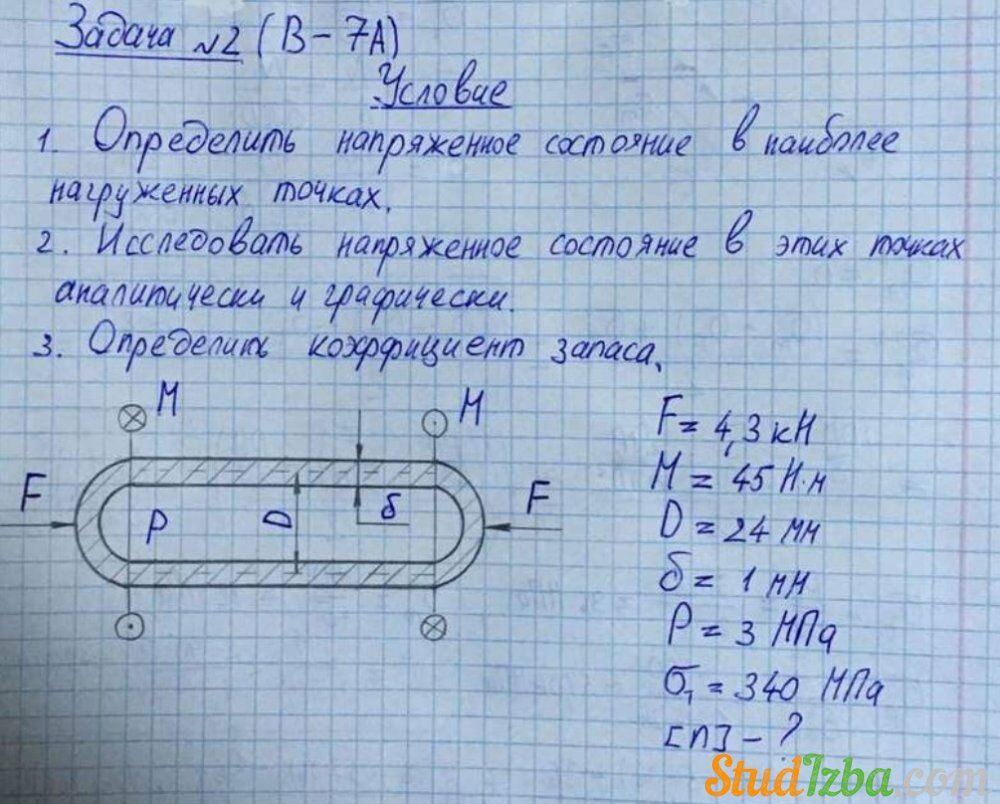 Задача №2 (В-7А)
Условие
1. Определить напряженное состояние в наиболее
нагруженных точках.
2. Исследовать напряженное состояние в этих точках
аналитически и графически.
3. Определить коэффициент запаса.
M M
F = 4,3 кН
F P D δ F
M = 45 Н·м
D = 24 мм
δ = 1 мм
P = 3 МПа
σ₁ = 340 МПа
[n] - ?
StudIzba.com